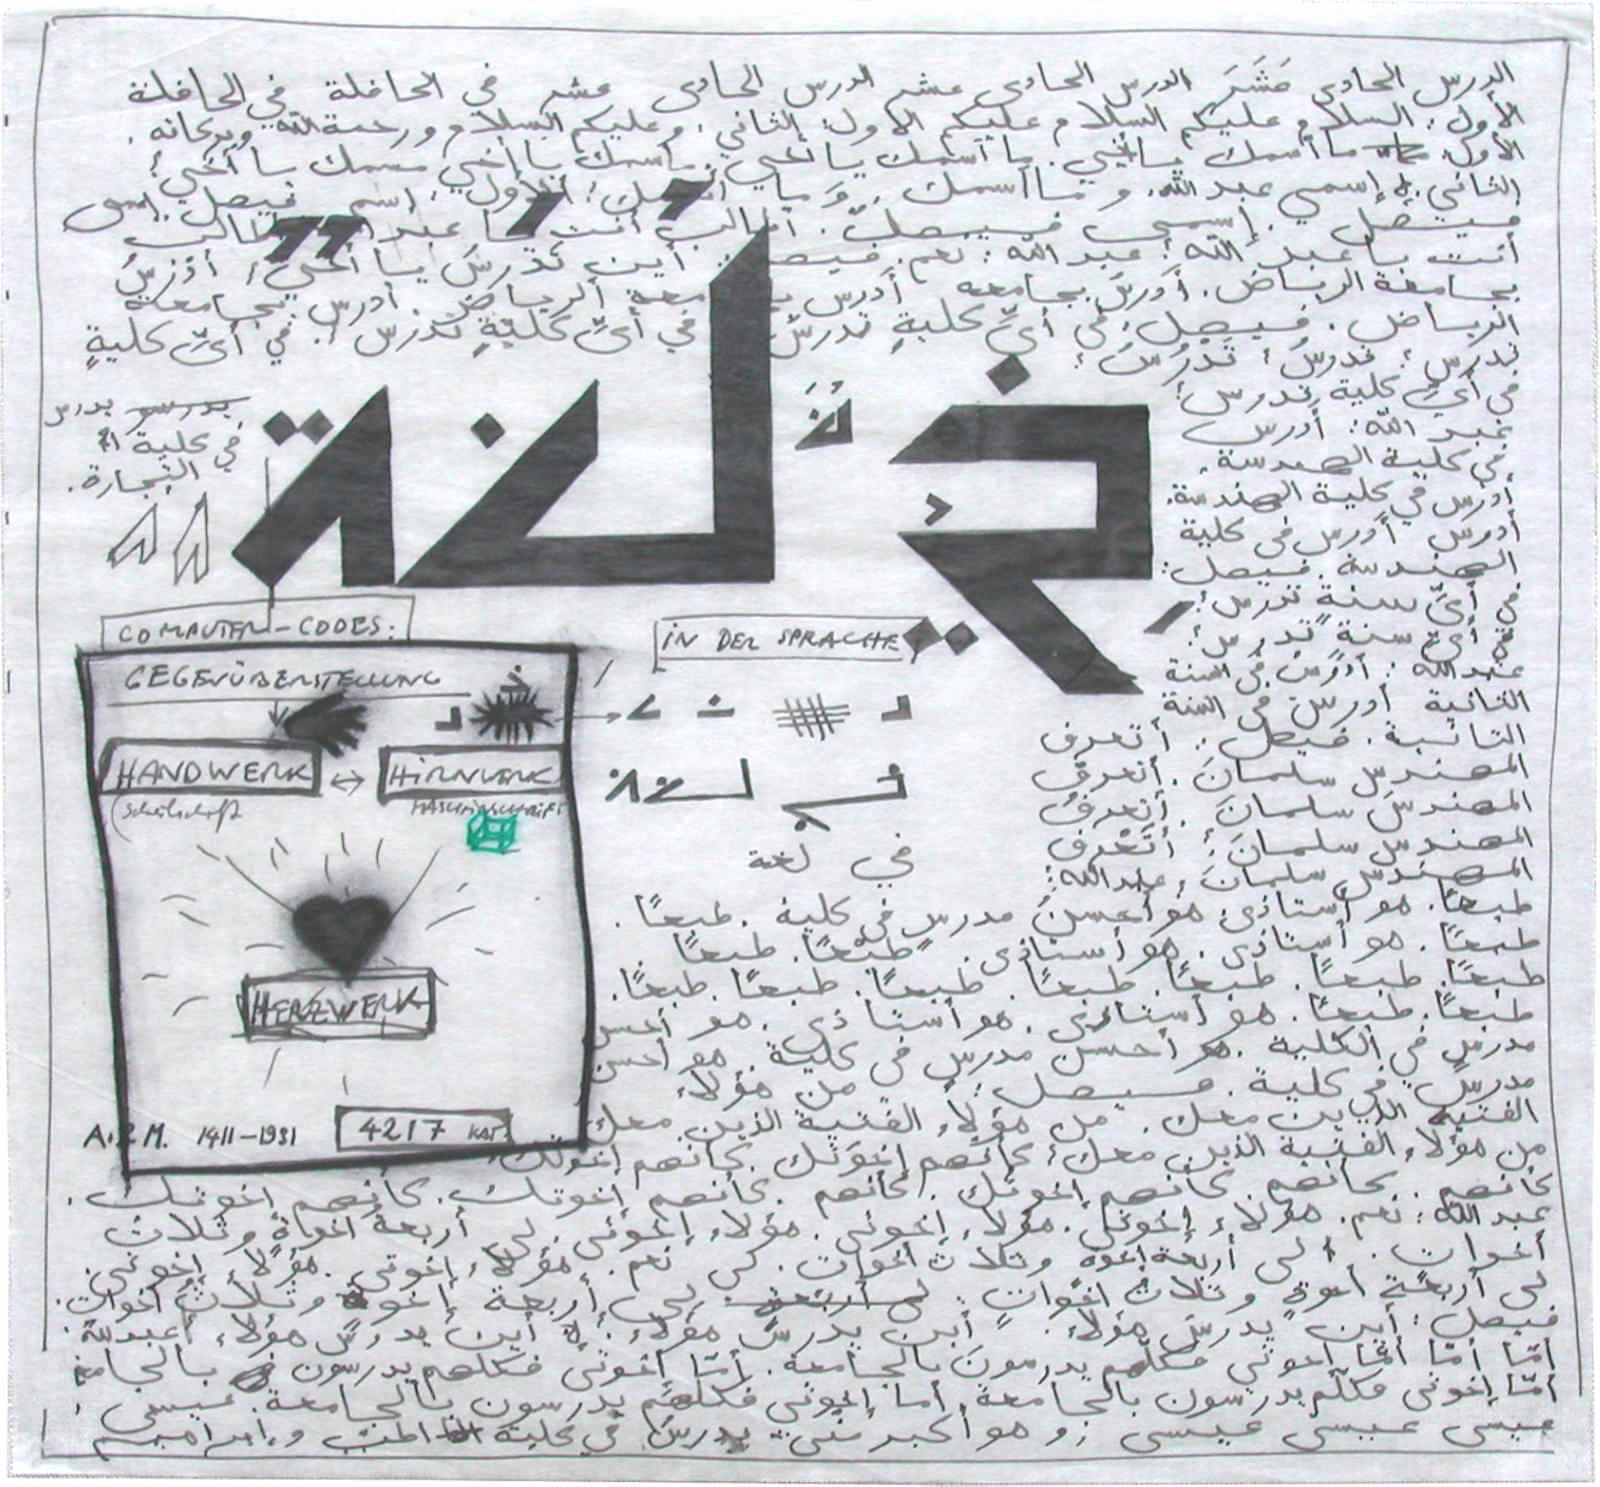 الدرس الحادى عَشَرَ الدرس الحادى عشر الدرس الحادى عشر في الحافلة في الحافلة
الأول: السلام عليكم السلام عليكم الأول: الثاني: وعليكم السلام ورحمة الله وبركاته.
الأول: ما أسمك يا أخي. ما أسمك يا أخي. ما أسمك يا أخي يا أخي؟
الثاني: إسمي عبد الله. و ما أسمك. وَ ما الأول: إسم فيصل. إسمى
فيصل. إسمى فيصل. أطالب أنت يا طالب
أنت يا عبد الله؟ عبد الله: نعم. فيصل: أين تدرسَ يا أخى؟ أدرسُ
بجامعة الرياض. أدرسُ بجامعة أدرس الرياض. أدرس بجامعة
الرياض. فيصل: في أىِّ كليةٍ تدرسُ في أىِّ كليّةٍ تدرس؟ في أىِّ كليةٍ
تدرس؟ تدرسُ؟ تَدْرُسُ؟
في أىِّ كلية تدرس؟
عبد الله: أدرس
في كلية الهندسة.
أدرس في كلية الهندسة.
أدرس أدرس في كلية
الهندسة. فيصل:
في أىِّ سنة تدرس؟
في أىّ سنة تدرس؟
عبد الله: أدرس في السنة
الثانية أدرس في السنة
الثانية. فيصل: أتعرف
المهندس سلمانَ. أتعرف
المهندسَ سلمانَ. أتعرفُ
المهندس سلمانَ؟ أتَعْرف
المهندس سلمانَ، عبد الله:
يدرس
في كلية
التجارة.
خ
لغة
لُغَة
COMPUTER-CODES:
IN DER SPRACHE
GEGENÜBERSTELLUNG
HANDWERK ↔ HIRNWERK
(Schreibschrift MASCHINSCHRIFT
في لغة
HERZWERK
A.R.M. 1411-1991 4217 KAT.
طبعًا. هو أستاذى. هو أحسنُ مدرس في كلية. طبعًا.
طبعًا. هو أستاذى. هو أستاذى. طبْعًا. طبعًا.
طبعًا. طبعًا. طبعًا. طبعًا. طبعًا. طبعًا. طبعًا.
طبعًا. طبعًا. هو أستاذى. هو أستاذي. هو أحسن
مدرسٍ في الكلية. هو أحسن مدرسٍ في كلية. هو أحسن
مدرسٍ في كلية. فيصل: من هؤلاء
الفتية الذين معك. من هؤلاء الفتية الذين معك
من هؤلاء الفتية الذين معك؟ كأنهم إخوتك. كأنهم إخوتك.
كأنهم. كأنهم. كأنهم إخوتك. كأنهم. كأنهم إخوتك. كأنهم إخوتك.
عبد الله: نعم. هؤلاء إخوتى. هؤلاء إخوتى. هؤلاء إخوتى. لى أربعة إخوة وثلاث
أخوات. لى أربعة إخوة وثلاث أخوات. لى نعم. هؤلاء إخوتى. هؤلاء إخوتى.
لى أربعة إخوة وثلاث أخواتٍ. لى أربعة إخوة وثلاثُ أخوات.
فيصل: أين يدرسُ هؤلاء. أين يدرسُ هؤلاء؟ أين يدرسُ هؤلاء؟ عبد الله:
أمّا أمّا إخوتي فكلهم يدرسونَ بالجامعة. أمّا إخوتى فكلهم يدرسون بالجامعة
أمّا إخوتى فكلهم يدرسون بالجامعة. أما إخوتي فكلهم يدرسون بالجامعة. عيسى
عيسى عيسى عيسى. وهو أكبر منى. يدرسُ في كلية الطب وإبراهيم